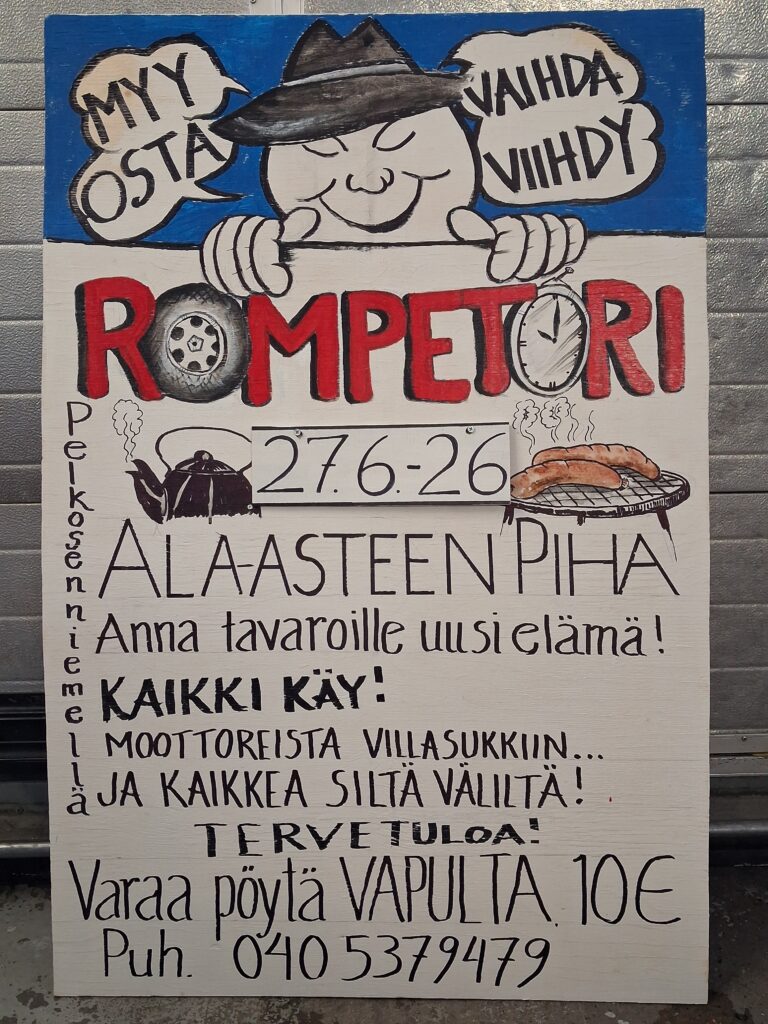 MYY
OSTA
VAIHDA
VIIHDY
ROMPETORI
Pelkosenniemellä
27.6.-26
ALA-ASTEEN PIHA
Anna tavaroille uusi elämä!
KAIKKI KÄY!
MOOTTOREISTA VILLASUKKIIN...
JA KAIKKEA SILTÄ VÄLILTÄ!
TERVETULOA!
Varaa pöytä VAPULTA. 10€
Puh. 040 5379479